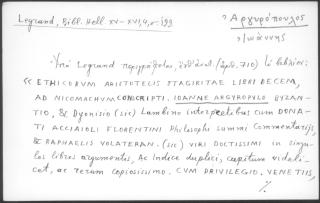 Legrand, Bibl. Hell. XV-XVI, 4, σ. 199
Ἀργυρόπουλος
Ἰωάννης
Ὑπὸ Legrand περιγράφεται, (ἀρ. 710) τὸ βιβλίον:
« ETHICORUM ARISTOTELIS STAGIRITAE LIBRI DECEM,
AD NICOMACHUM CONSCRIPTI, IOANNE ARGYROPYLO BYZAN-
TIO, & Dyonisio (sic) Lambino interpretibus cum DONA-
TI ACCIAIOLI FLORENTINI Philosophi summi Commentarijs,
& RAPHAELIS VOLATERAN. (sic) VIRI DOCTISSIMI in singu-
los libros argumentis, Ac indice duplici, capitum videli-
cet, ac rerum copiosissimo. CUM PRIVILEGIO. VENETIIS,